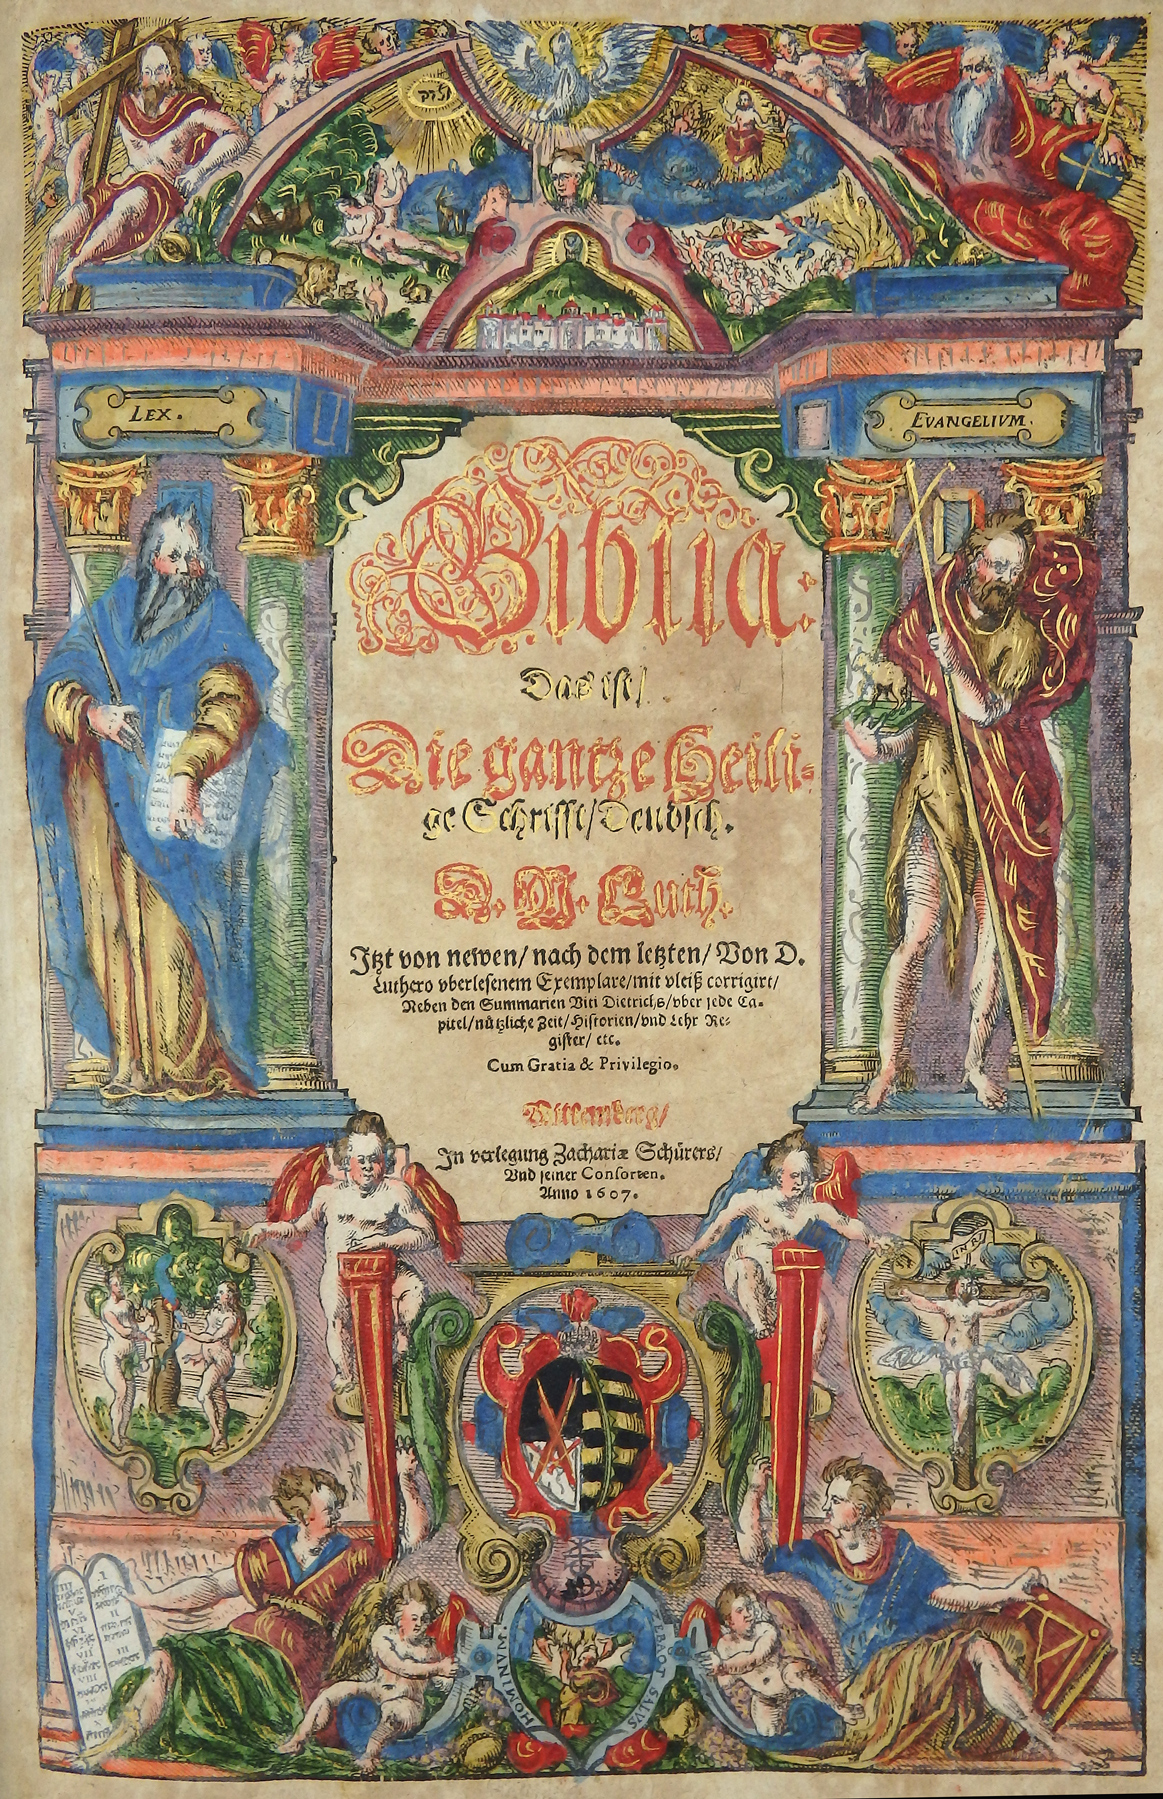 LEX.
EVANGELIVM.
Biblia:
Das ist/
Die gantze Heili-
ge Schrifft/Deudsch.
D. M. Luth.
Jtzt von newen/ nach dem letzten/ Von D.
Luthero vberlesenem Exemplare/mit vleiß corrigirt/
Neben den Summarien Viti Dietrichs/vber jede Ca-
pitel/nützliche Zeit/Historien/vnd Lehr Re-
gister/ etc.
Cum Gratia & Privilegio.
Wittemberg/
Jn verlegung Zachariæ Schürers/
Vnd seiner Consorten.
Anno 1607.
INRI
HOMINVM.
EBAOT SALVS